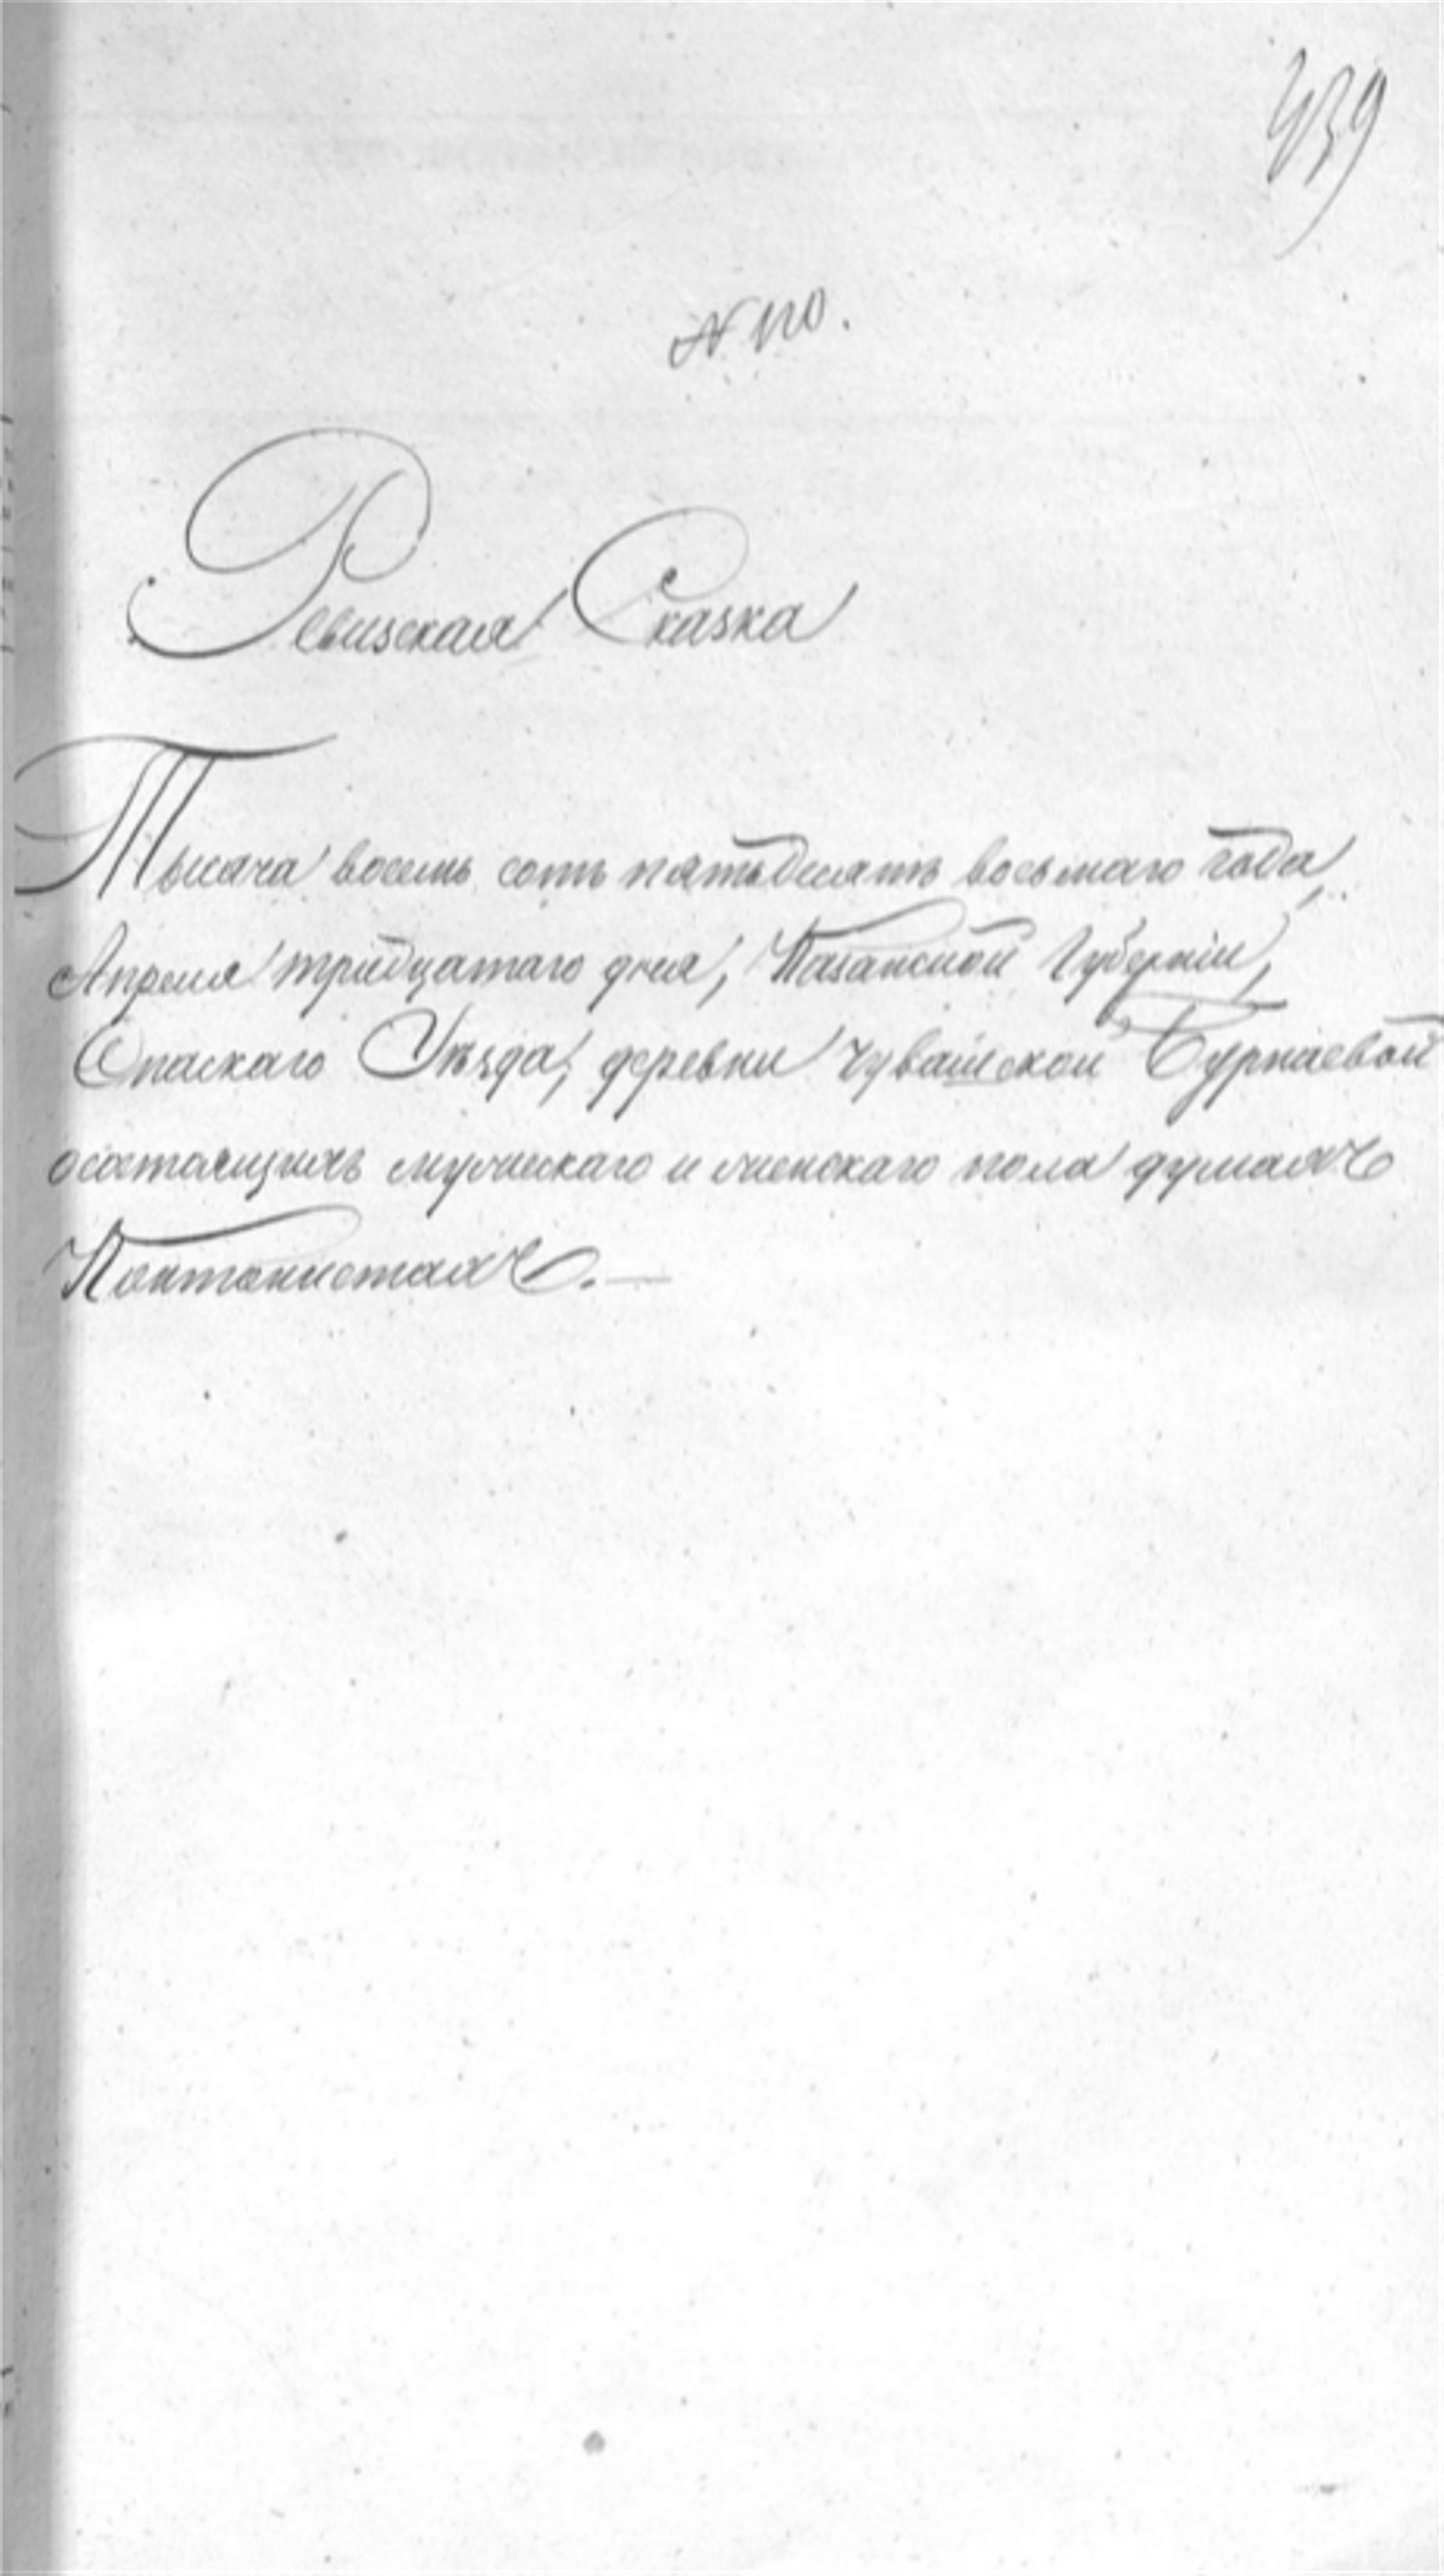 439
N 110.
Ревизская Сказка
Тысяча восемь сотъ пятьдесятъ восьмаго года
Апреля тридцатаго дня, Казанской Губерніи,
Спаскаго Уѣзда, деревни Чувашской Бурнаевой
осостоящихъ мужескаго и женскаго пола душахъ
Кантонистахъ.—